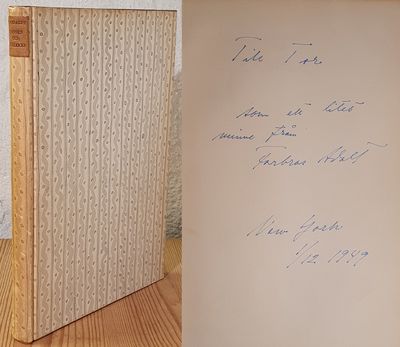 Till Tor
som ett litet
minne från
Farbror Adolf
New York
1/12 1949